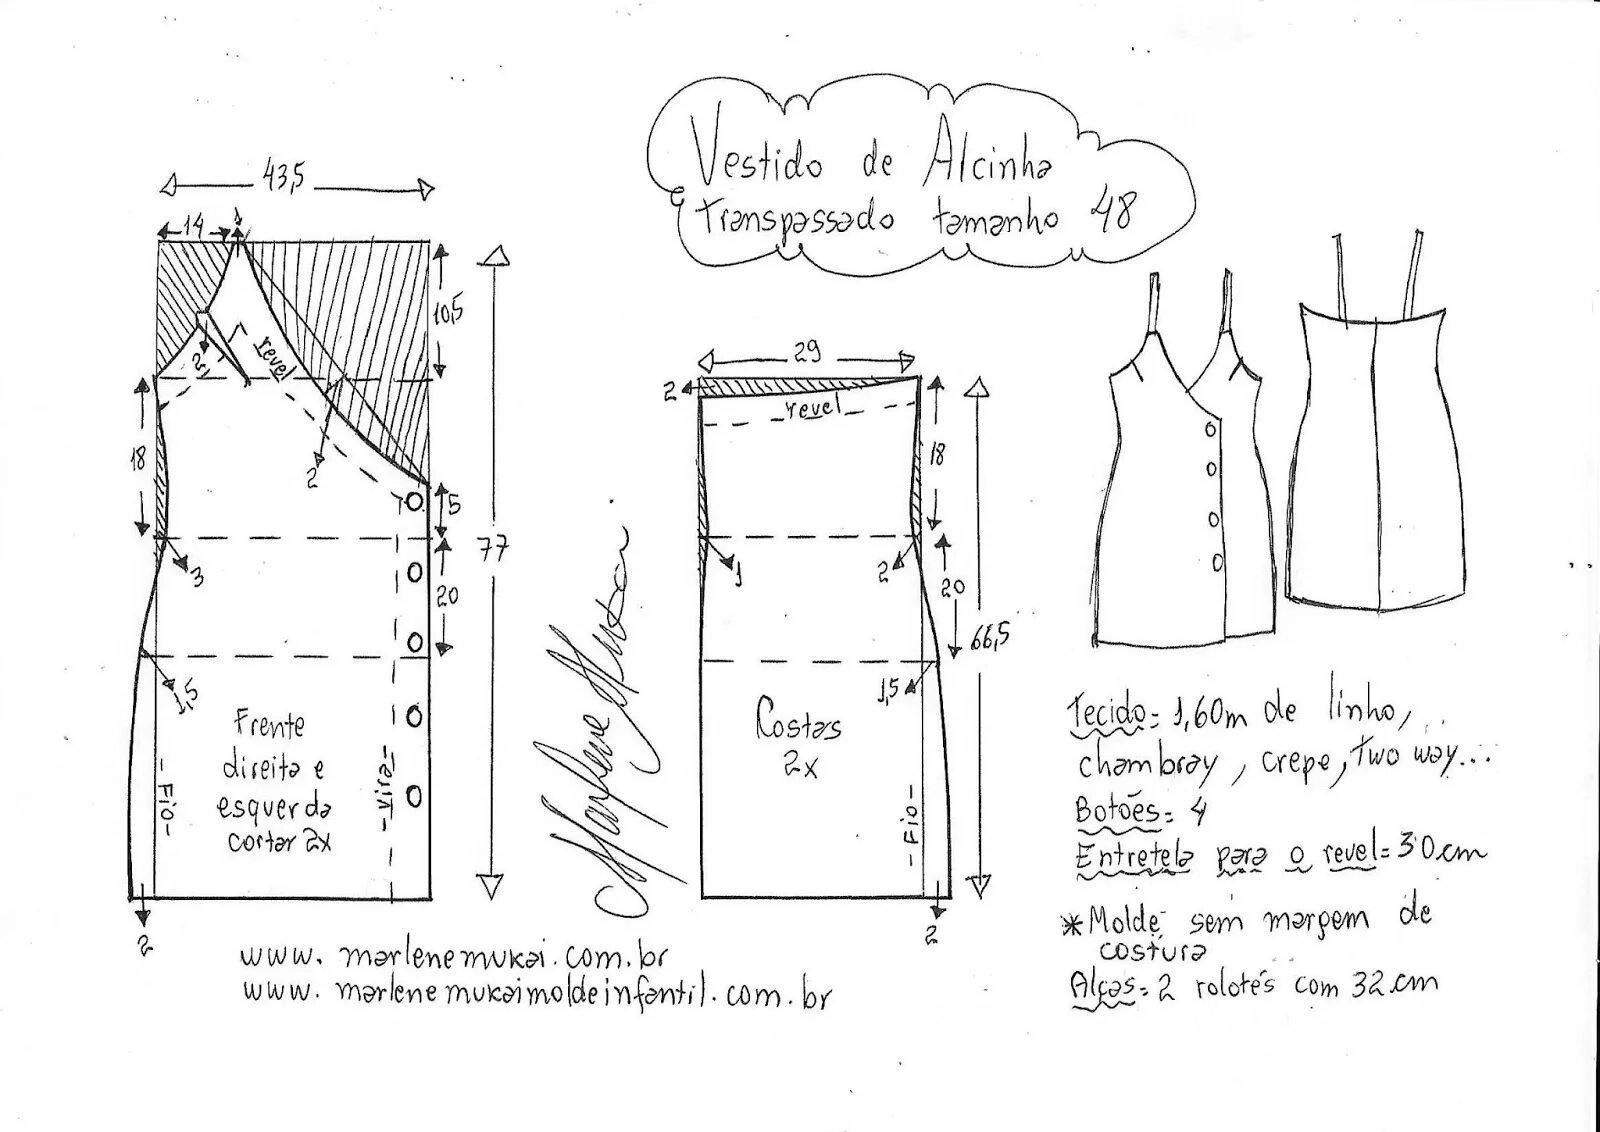 Vestido de Alcinha
e transpassado tamanho 48
43,5
14
1
10,5
revel
2
18
2
5
3
77
20
1,5
Frente
direita e
esquerda
cortar 2x
-Fio-
-vira-
2
29
2
revel
18
1
2
20
66,5
1,5
Costas
2x
-Fio-
2
Marlene Mukai
Tecido= 1,60m de linho,
chambray, crepe, two way...
Botões= 4
Entretela para o revel= 30cm
*Molde sem margem de
costura
Alças= 2 rolotés com 32cm
www.marlenemukai.com.br
www.marlenemukaimoldeinfantil.com.br